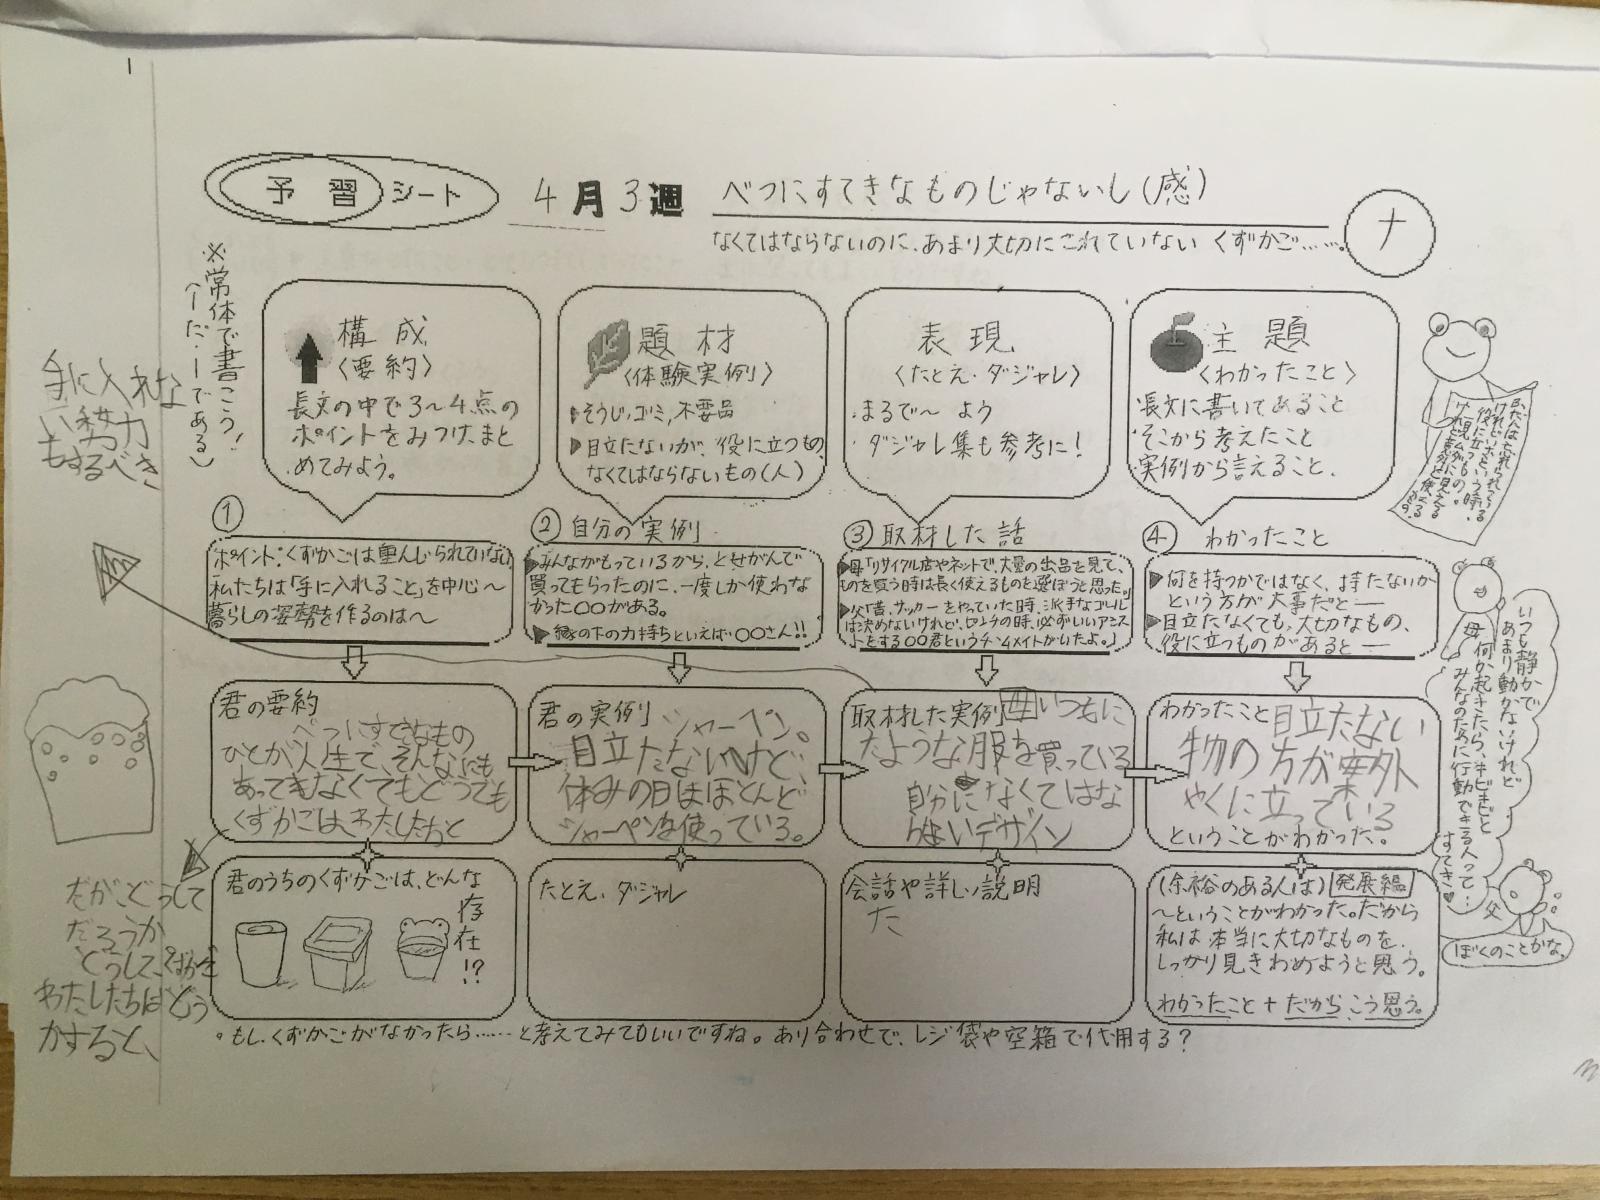 予習シート 4月3週 べつにすてきなものじゃないし(感)
なくてはならないのに、あまり大切にされていない くずかご……。
ナ
※常体で書こう!
(ーだ・ーである)
構成
〈要約〉
長文の中で3〜4点の
ポイントをみつけ、まと
めてみよう。
題材
〈体験実例〉
そうじ、ゴミ、不要品
目立たないが、役に立つもの、
なくてはならないもの(人)
表現
〈たとえ・ダジャレ〉
まるで〜 よう
ダジャレ集も参考に!
主題
〈わかったこと〉
長文に書いてあること
そこから考えたこと
実例から言えること、
ふだんは忘れられている
けれど、いざという時、
役に立つもの。
一見ムダに見える
けれど
手に入れな
い努力
もするべき
①
ポイント:くずかごは重んじられていない
私たちは「手に入れること」を中心〜
暮らしの姿勢を作るのは〜
② 自分の実例
みんながもっているから、とせがんで
買ってもらったのに、一度しか使わな
かった〇〇がある。
縁の下の力持ちといえば・〇〇さん!!
③ 取材した話
母「リサイクル店やネットで、大量の出品を見て、
ものを買う時は長く使えるものを選ぼうと思った。」
父「昔、サッカーをやっていた時、派手なゴール
は決めないけれど、ピンチの時、必ずいいアシス
トをする〇〇君というチームメイトがいたよ。」
④ わかったこと
何を持つかではなく、持たないか
という方が大事だと―
目立たなくても、大切なもの、
役に立つものがあると―
君の要約
べついすてきなもの
ひとが人生で、そんなにも
あってもなくてもどうでも
くずかごは、わたしたちと
君の実例 シャーペン。
目立たないけど、
休みの日はほとんど
シャーペンを使っている。
取材した実例 母 いつもに
たような服を買っている
自分になくてはな
らないデザイン
わかったこと 目立たない
物の方が案外
やくに立っている
ということがわかった。
いつも静かで
あまり動かないけれど
何か起きたら、キビキビと
みんなのために行動できる人って…
すてき♥
母
父
ぼくのことかな。
だが、どうして
だろうか
どうして、
わたしたちはどう
かすると、
君のうちのくずかごは、どんな
存在!?
たとえ、ダジャレ
会話や詳しい説明
た
(余裕のある人は) 発展編
〜ということがわかった。だから
私は本当に大切なものを、
しっかり見きわめようと思う。
わかったこと + だから こう思う。
。もし、くずかごがなかったら……と考えてみてもいいですね。あり合わせで、レジ袋や空箱で代用する?